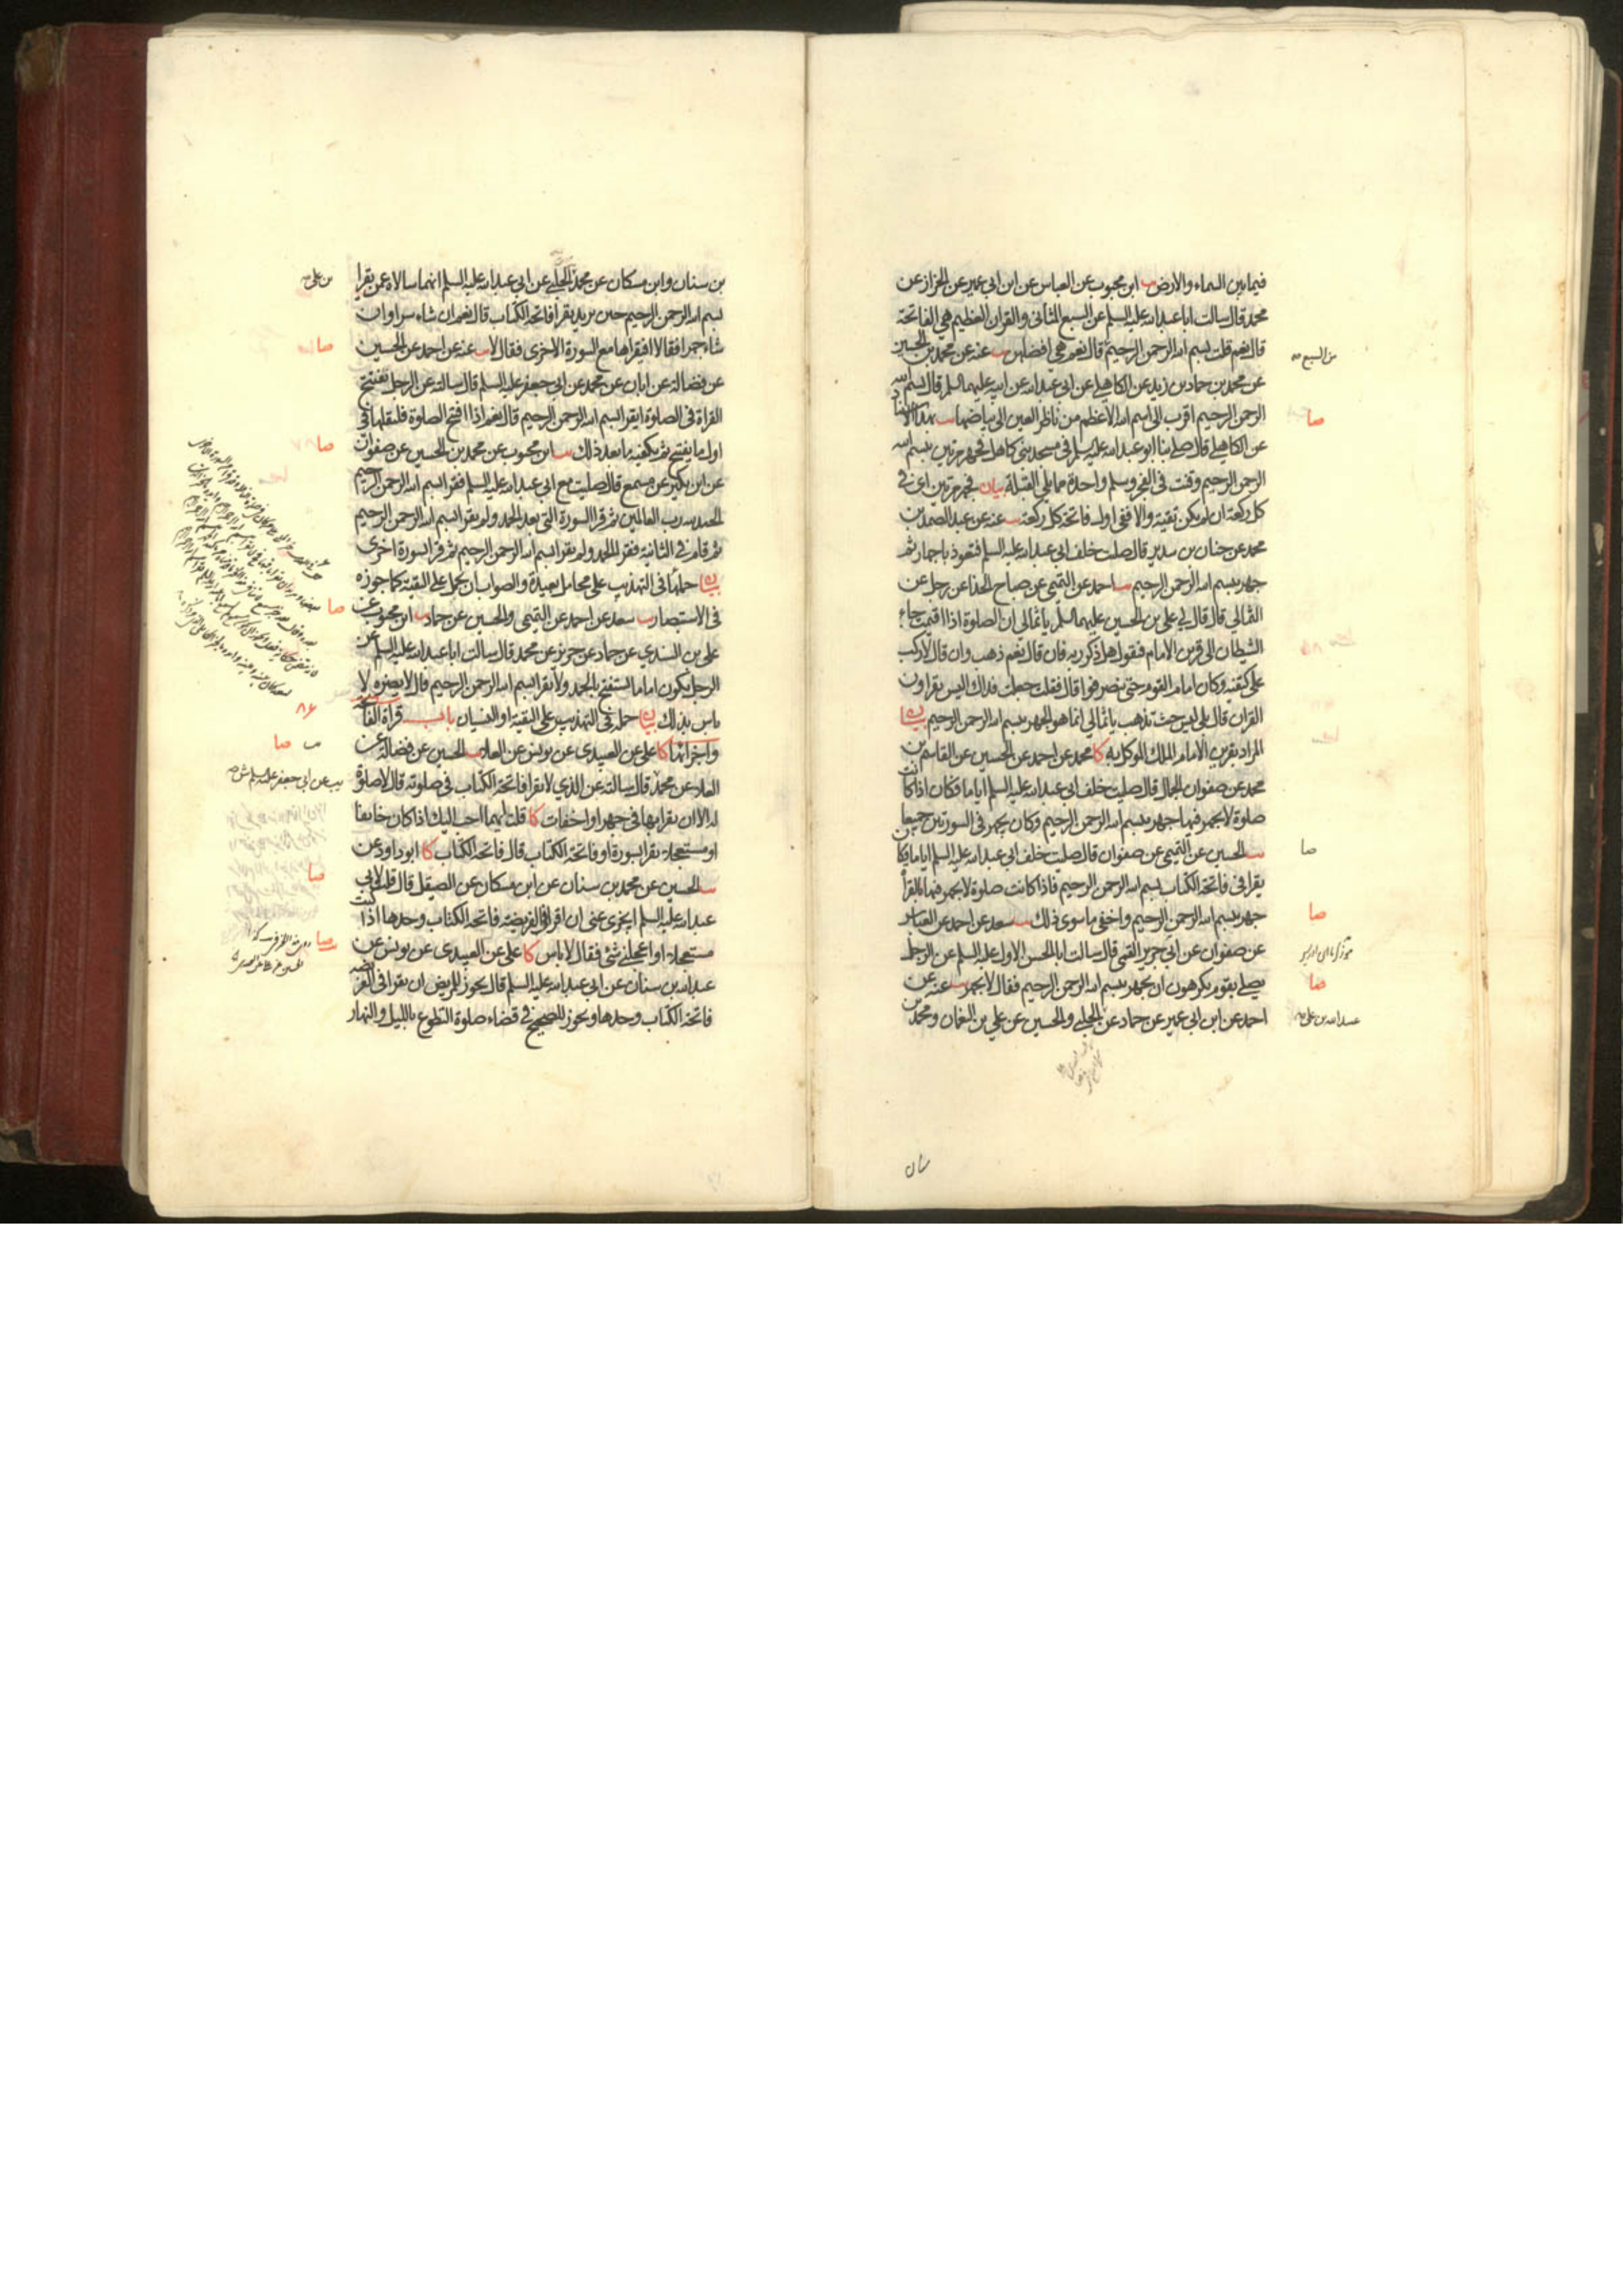 فيما بين السماء والارض يب ابن محبوب عن العباس عن ابن ابي عمير عن الخراز عن
محمد قال سالت ابا عبد الله عليه السلم عن السبع المثاني والقران العظيم هي الفاتحة
قال نعم قلت بسم الله الرحمن الرحيم قال نعم هي افضلهن يب عنه عن محمد بن الحسين
من السبع
عن محمد بن حماد بن زيد عن الكاهلي عن ابي عبد الله عن ابيه عليهما السلم قال بسم الله
الرحمن الرحيم اقرب الى اسم الله الاعظم من ناظر العين الى بياضها يب بهذا الاسناد
صا
عن الكاهلي قال صلى بنا ابو عبد الله عليه السلم في مسجد بني كاهل فجهر مرتين ببسم الله
الرحمن الرحيم وقنت في الفجر وسلم واحدة مما يلي القبلة بيان فجهر مرتين اي في
كل ركعة ان لم يكن تقية والا ففي اول فاتحة كل ركعة يب عنه عن عبد الصمد بن
محمد عن حنان بن سدير قال صليت خلف ابي عبد الله عليه السلم فتعوذ باجهار ثم
جهر ببسم الله الرحمن الرحيم يب احمد عن التميمي عن صباح الحذا عن رجل عن
الثمالي قال قال لي علي بن الحسين عليهما السلم يا ثمالي ان الصلوة اذا اقيمت جاء
الشيطان الى قرين الامام فيقول هل ذكر ربه فان قال نعم ذهب وان قال لا ركب
على كتفيه وكان امام القوم حتى ينصرفوا قال فقلت جعلت فداك اليس يقراون
القران قال بلى ليس حيث تذهب يا ثمالي انما هو الجهر ببسم الله الرحمن الرحيم بيان
المراد بقرين الامام الملك الموكل به كا محمد عن احمد عن الحسين عن القاسم بن
محمد عن صفوان الجمال قال صليت خلف ابي عبد الله عليه السلم اياما فكان اذا كانت
صلوة لا يجهر فيها جهر ببسم الله الرحمن الرحيم وكان يجهر في السورتين جميعا
يب الحسين عن التميمي عن صفوان قال صليت خلف ابي عبد الله عليه السلم اياما فكان
صا
يقرا في فاتحة الكتاب بسم الله الرحمن الرحيم فاذا كانت صلوة لا يجهر فيها بالقراة
جهر ببسم الله الرحمن الرحيم واخفى ما سوى ذلك يب سعد عن احمد عن العباس
صا
عن صفوان عن ابي جرير القمي قال سالت ابا الحسن الاول عليه السلم عن الرجل
يصلي بقوم يكرهون ان يجهر ببسم الله الرحمن الرحيم فقال لا يجهر يب عنه عن
صا
احمد عن ابن ابي عمير عن حماد عن الحلبي والحسين عن علي بن النعمان ومحمد بن
عبيد الله بن علي
بن سنان وابن مسكان عن محمد الحلبي عن ابي عبد الله عليه السلم انهما سالاه عمن يقرا
بن علي
بسم الله الرحمن الرحيم حين يريد يقرا فاتحة الكتاب قال نعم ان شاء سرا وان
شاء جهرا فقالا افيقراها مع السورة الاخرى فقال لا يب عنه عن احمد عن الحسين
صا
عن فضالة عن ابان عن محمد عن ابي جعفر عليه السلم قال سالته عن الرجل يفتتح
القراة في الصلوة ايقرا بسم الله الرحمن الرحيم قال نعم اذا افتتح الصلوة فليقلها في
اول ما يفتتح ثم يكفيه ما بعد ذلك يب ابن محبوب عن محمد بن الحسين عن صفوان
صا
عن ابن بكير عن مسمع قال صليت مع ابي عبد الله عليه السلم فقرا بسم الله الرحمن الرحيم
الحمد لله رب العالمين ثم قرا السورة التي بعد الحمد ولم يقرا بسم الله الرحمن الرحيم
ثم قام في الثانية فقرا الحمد ولم يقرا بسم الله الرحمن الرحيم ثم قرا بسورة اخرى
بيان حملها في التهذيب على محامل بعيدة والصواب ان يحمل على التقية كما جوزه
في الاستبصار يب سعد عن احمد عن التميمي والحسين عن حماد يب ابن محبوب عن
صا
علي بن السندي عن حماد عن حريز عن محمد قال سالت ابا عبد الله عليه السلم عن
الرجل يكون اماما يستفتح بالحمد ولا يقرا بسم الله الرحمن الرحيم قال لا يضره لا
باس بذلك بيان حمله في التهذيب على التقية او النسيان باب قراة الفاتحة
٨٦
واجزائها كا علي عن العبيدي عن يونس عن العلا يب الحسين عن فضالة عن
يب صا
العلا عن محمد قال سالته عن الذي لا يقرا فاتحة الكتاب في صلوته قال لا صلوة
يب عن ابي جعفر عليه السلم ش
له الا ان يقرا بها في جهر او اخفات كا قلت ايهما احب اليك اذا كان خايفا
او مستعجلا يقرا بسورة او فاتحة الكتاب قال فاتحة الكتاب كا ابو داود عن
يب الحسين عن محمد بن سنان عن ابن مسكان عن الصيقل قال قلت لابي
صا
عبد الله عليه السلم ايجزي عني ان اقرا في الفريضة فاتحة الكتاب وحدها اذا كنت
مستعجلا او اعجلني شئ فقال لا باس كا علي عن العبيدي عن يونس عن
صا
عبد الله بن سنان عن ابي عبد الله عليه السلم قال يجوز للمريض ان يقرا في الفريضة
فاتحة الكتاب وحدها ويجوز للصحيح في قضاء صلوة التطوع بالليل والنهار